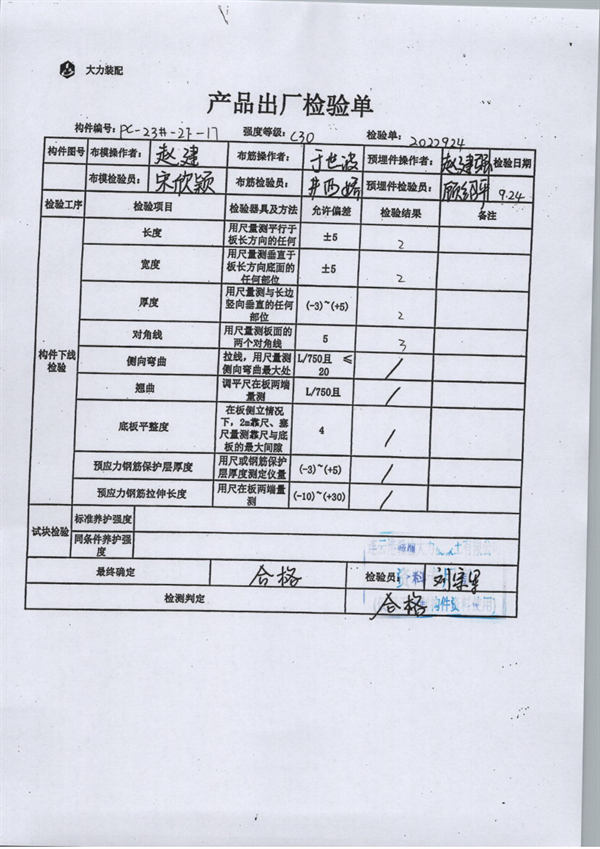 大力装配
产品出厂检验单
构件编号: PC-23#-2F-17 强度等级: C30 检验单: 2022924
构件图号 布模操作者: 赵建 布筋操作者: 于世波 预埋件操作者: 赵建强 检验日期
布模检验员: 宋欣颖 布筋检验员: 预埋件检验员: 9.24
检验工序 检验项目 检验器具及方法 允许偏差 检验结果 备注
构件下线检验
长度 用尺量测平行于板长方向的任何 ±5 2
宽度 用尺量测垂直于板长方向底面的任何部位 ±5 2
厚度 用尺量测与长边竖向垂直的任何部位 (-3)~(+5) 2
对角线 用尺量测板面的两个对角线 5 3
侧向弯曲 拉线，用尺量测侧向弯曲最大处 L/750且 ≤20 /
翘曲 调平尺在板两端量测 L/750且 /
底板平整度 在板侧立情况下，2m靠尺、塞尺量测靠尺与底板的最大间隙 4 /
预应力钢筋保护层厚度 用尺或钢筋保护层厚度测定仪量 (-3)~(+5) /
预应力钢筋拉伸长度 用尺在板两端量测 (-10)~(+30) /
试块检验 标准养护强度
同条件养护强度
最终确定 合格 检验员:
检测判定 合格